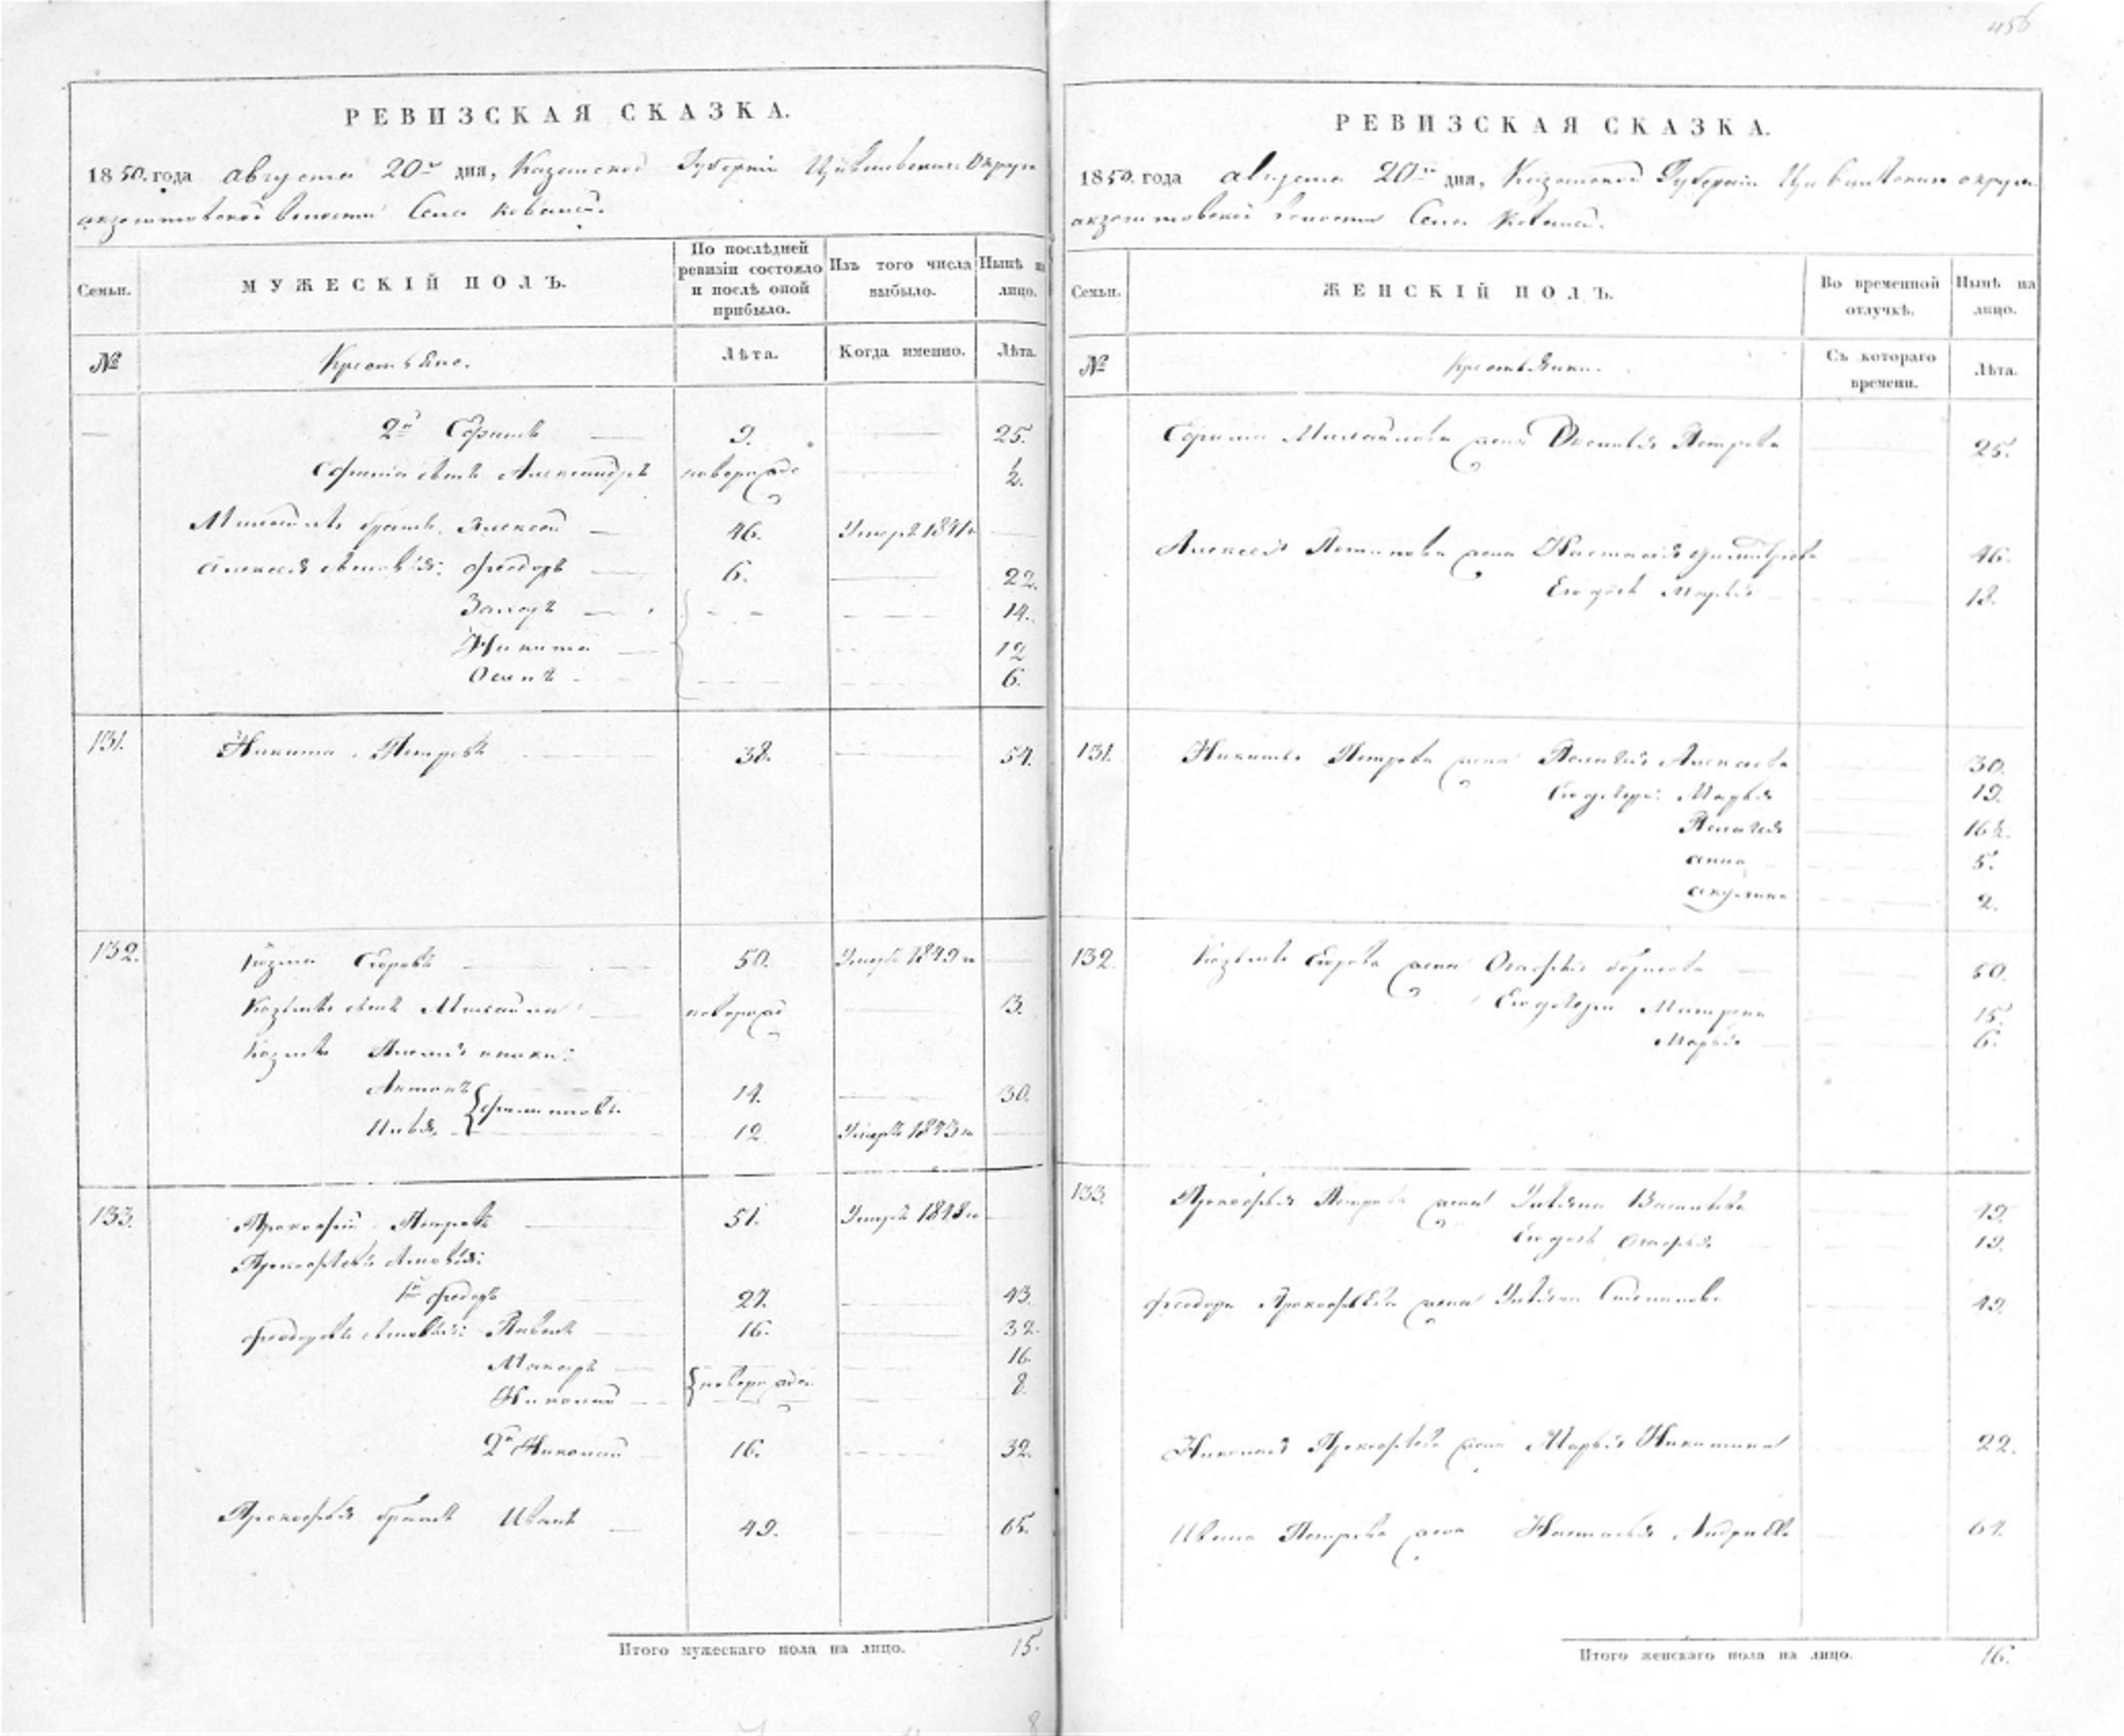 456
РЕВИЗСКАЯ СКАЗКА.
1850. года августа 20го дня, Казанской Губернiи Цивильскаго Округа
акзегитовской волости Села Ковалей.
Семьи.
МУЖЕСКІЙ ПОЛЪ.
По послѣдней ревизіи состояло и послѣ оной прибыло.
Изъ того числа выбыло.
Нынѣ на лицо.
№
Крестьяне.
Лѣта.
Когда именно.
Лѣта.
2й 9. 25.
сынъ Александръ новорожд ½.
братъ Алексѣй 46. Умеръ 1841г
Алексѣя сыновья: Феодоръ 6. 22.
Захаръ 14.
Никита 12
Осипъ 6.
131. Никита Петровъ 38. 54.
132. Козма Егоровъ 50. Умеръ 1849г
Козьмы сынъ Михайла новорожд 3.
Козмы племянники:
Антонъ 14. 30.
Илья 12 Умеръ 1843г
133. Прокофій Петровъ 51. Умеръ 1848г
Прокофьевы сыновья:
1й Феодоръ 27. 43.
Феодоровы сыновья: Павелъ 16. 32.
Макаръ новорожде. 16.
Николай 8
2й Николай 16. 32.
Прокофья братъ Иванъ 49. 65.
Итого мужескаго пола на лицо. 15.
РЕВИЗСКАЯ СКАЗКА.
1850. года августа 20го дня, Казанской Губерніи Цивильскаго округа
акзегитовской волости Села Ковалей.
Семьи.
ЖЕНСКІЙ ПОЛЪ.
Во временной отлучкѣ.
Нынѣ на лицо.
№
Крестьянки.
Съ котораго времени.
Лѣта.
Михайлова жена Петрова 25.
Алексѣя жена Настасья 46.
Его дочь Марья 13.
131. Никиты Петрова жена Пелагея Алексѣева 30.
Его дочери: Марья 19.
Пелагея 16½.
анна 5.
акулина 2.
132. Козьмы Егорова жена Огафья борисова 50.
Его дочери Матрена 15.
Марья 6.
133. Прокофья Петрова жена Ульяна Васильева 49.
Его дочь Огафья 19.
Феодора Прокофьева жена Ульяна Степанова 49.
Николая Прокофьева жена Марья Никитина 22.
Ивана Петрова жена Настасья Андреева 67.
Итого женскаго пола на лицо. 16.